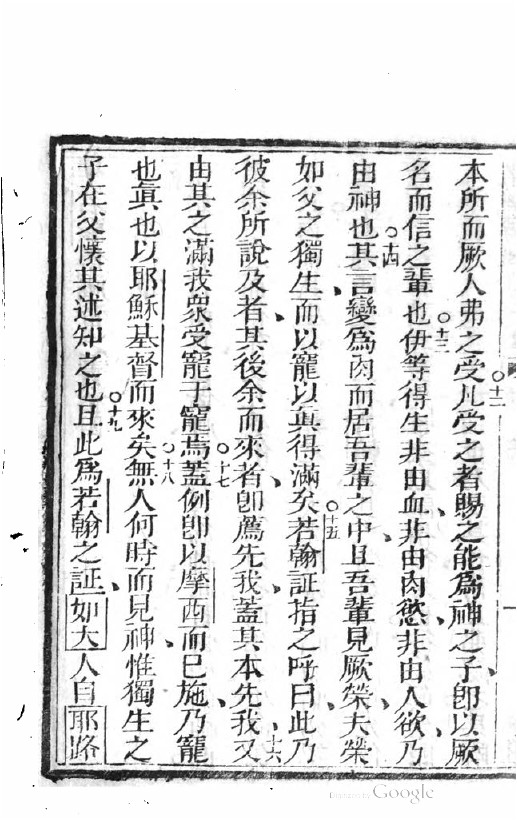 本所而厥人弗之受○十二凡受之者賜之能爲神之子卽以厥
名而信之輩也○十三伊等得生非由血非由肉慾非由人欲乃
由神也○十四其言變爲肉而居吾輩之中且吾輩見厥榮夫榮
如父之獨生而以寵以眞得滿矣○十五若翰証指之呼曰此乃
彼余所說及者其後余而來者卽爲先我蓋其本先我○十六又
由其之滿我衆受寵于寵焉○十七蓋例卽以摩西而已施乃寵
也眞也以耶穌基督而來矣○十八無人何時而見神惟獨生之
子在父懷其述知之也○十九且此爲若翰之証如大人自耶路
Digitized by Google